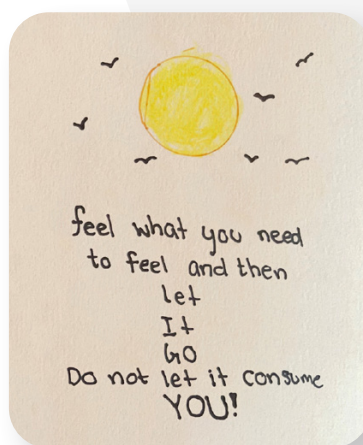 feel what you need
to feel and then
let
It
GO
Do not let it consume
YOU!